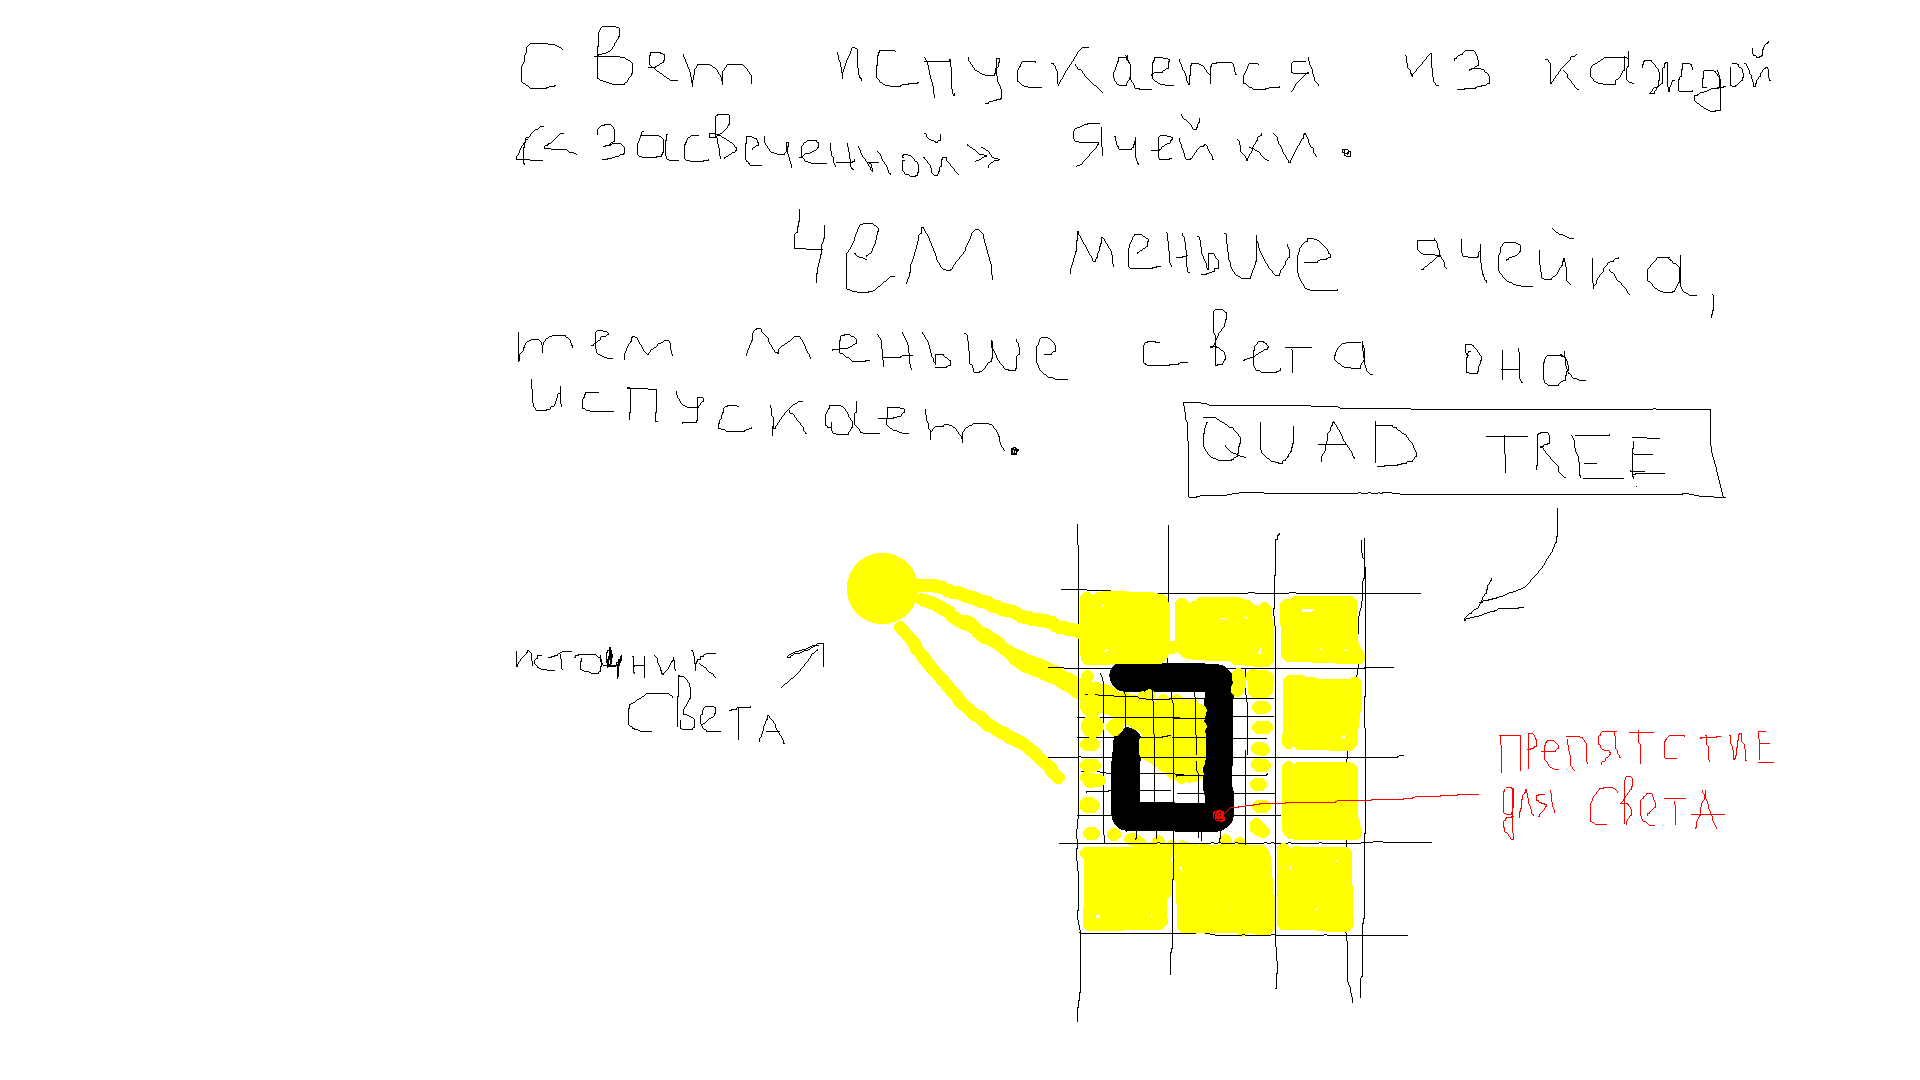 свет испускается из каждой
«засвеченной» ячейки.
Чем меньше ячейка,
тем меньше света она
испускает.
QUAD TREE
источник
света
препятстие
для света